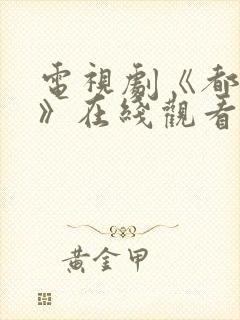 電視劇《都
》在綫觀看
黃金甲